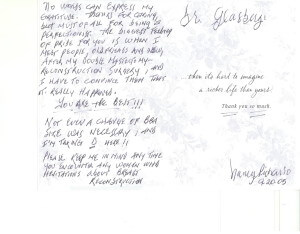 No words can express my
gratitude. Thanks for caring
but most of all for being a
perfectionist. The biggest feeling
of pride for you is when I
meet people, old friends and others
after my double mastectomy-
reconstruction surgery, and
I have to convince them that
it really happened.
You are the best!!!
Not even a change of bra
size was necessary, and
I'm talking D here!!
Please keep me in mind any time
you encounter any women with
hesitations about breast
reconstruction
Dr. Glasberg
then its hard to imagine
a richer life than yours.
Thank you so much.
Nancy
9.20.05